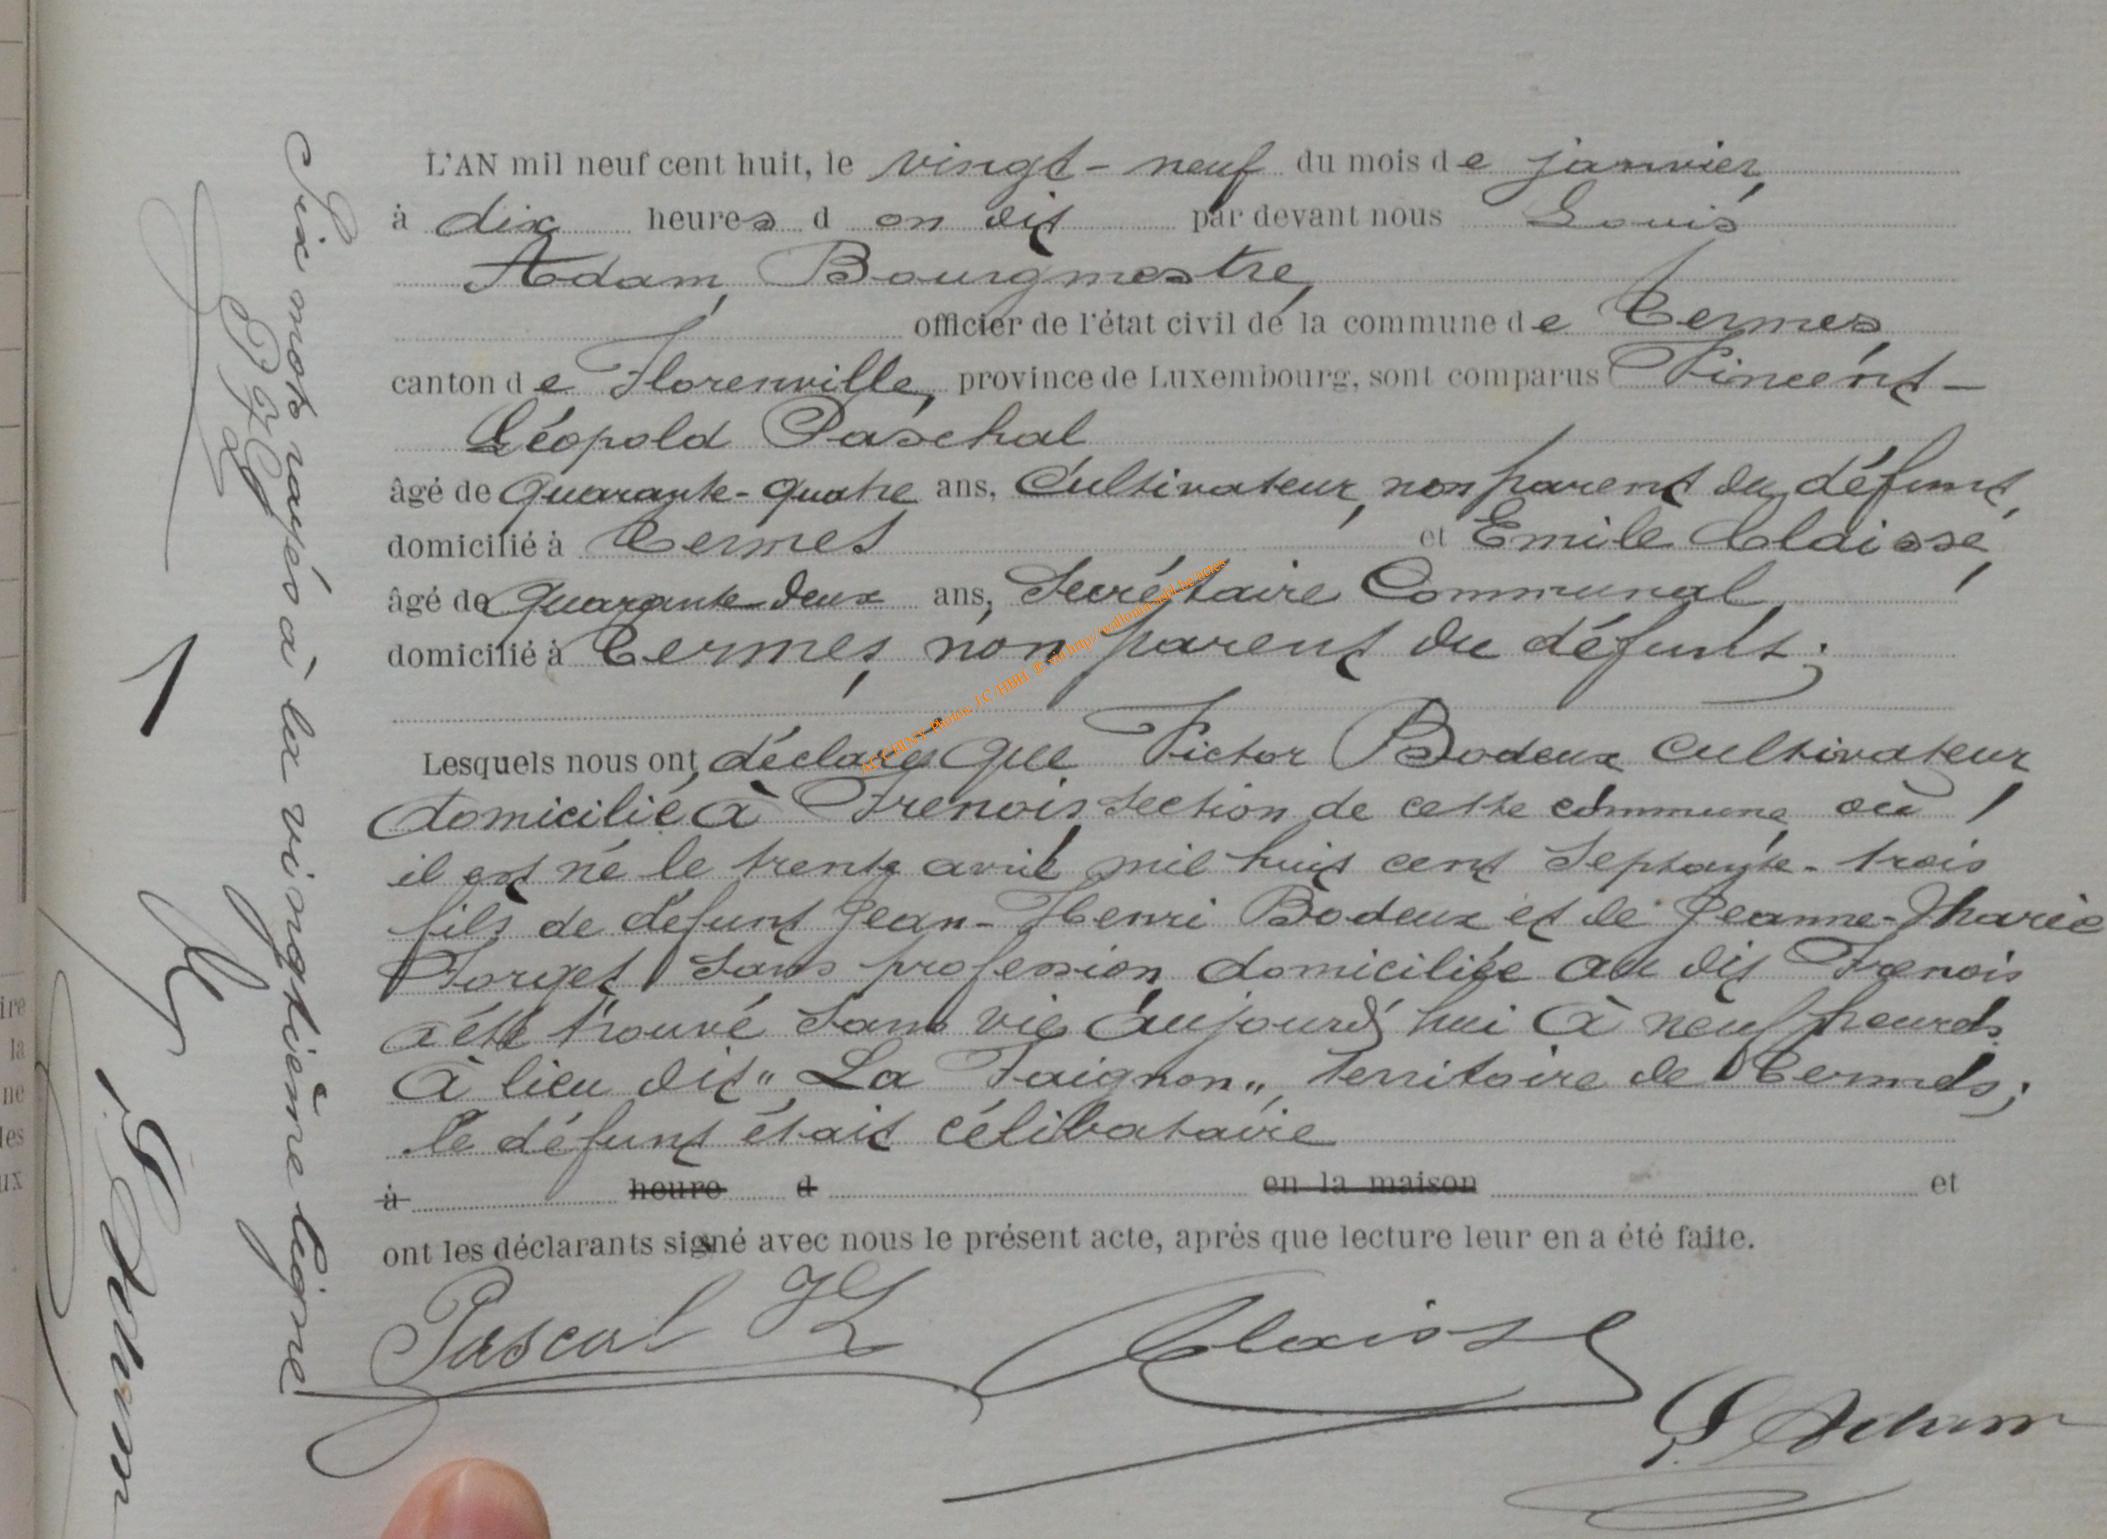 L'AN mil neuf cent huit, le vingt-neuf du mois de janvier,
à dix heures d on dit par devant nous Louis
Adam, Bourgmestre,
officier de l'état civil de la commune de Termes,
canton de Florenville, province de Luxembourg, sont comparus Vincent-
Léopold Paschal
âgé de quarante-quatre ans, cultivateur, non parent du défunt,
domicilié à Termes et Emile Claisse,
âgé de quarante-deux ans, Secrétaire Communal,
domicilié à Termes, non parent du défunt;
Lesquels nous ont déclaré que Victor Bodeux cultivateur
domicilié à Frenois, section de cette commune, où
il est né le trente avril mil huit cent septante-trois
fils de défunt Jean-Henri Bodeux et de Jeanne-Marie
Forget sans profession domiciliée au dit Frenois
a été trouvé sans vie aujourd'hui à neuf heures
à lieu dit "La Faignon", territoire de Termes;
le défunt était célibataire
à heure d en la maison et
ont les déclarants signé avec nous le présent acte, après que lecture leur en a été faite.
Pascal VL Claisse
L Adam
Six mots rayés à la vingtième ligne
L. Adam
ire
la
ne
les
ux